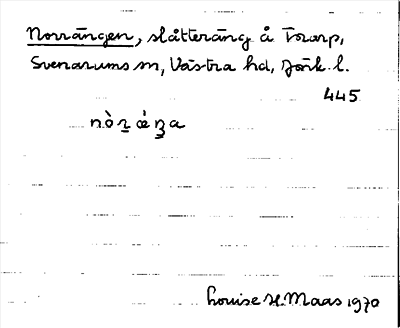 Norrängen, slåtteräng å Torarp,
Svenarums sn, Västra hd, Jönk. l.
445
Louise H. Maas 1970